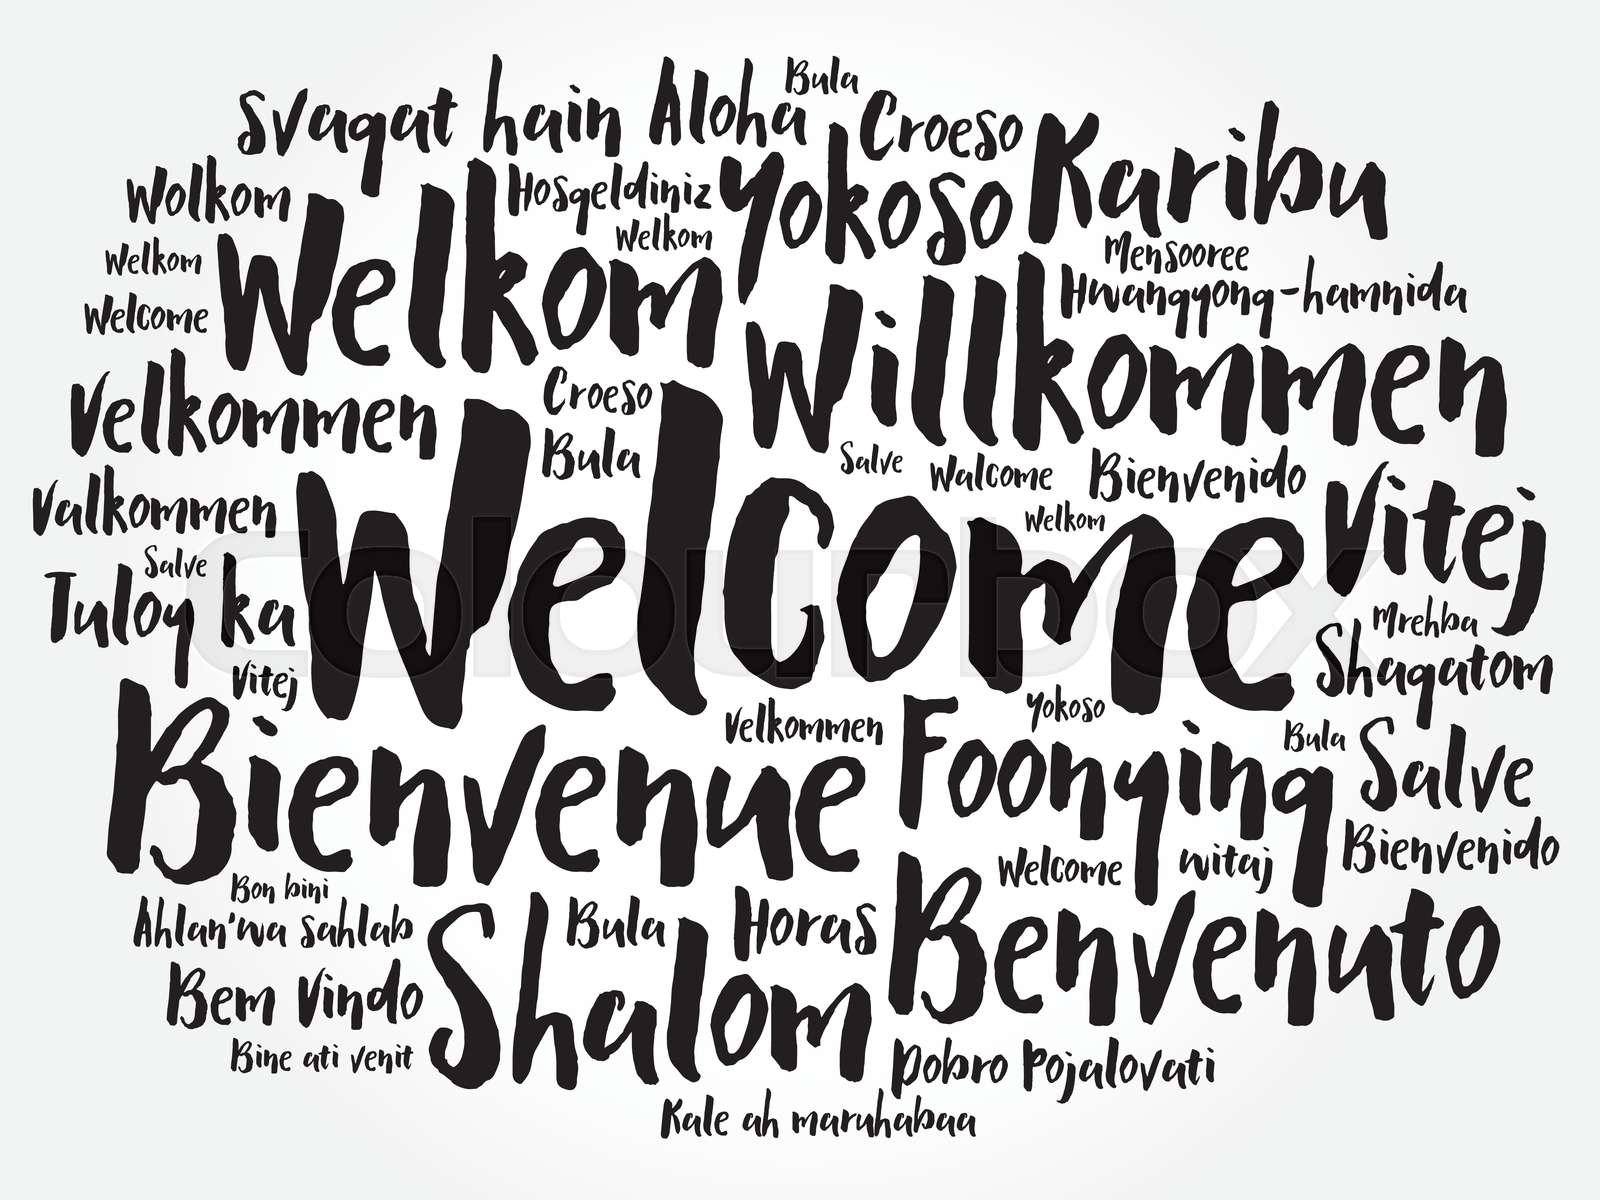 Bula
Svagat hain Aloha Croeso Karibu
Wolkom Hosgeldiniz Yokoso
Welkom Mensooree
Welkom Welkom Hwangyong-hamnida
Welcome Willkommen
Velkommen Croeso
Bula Salve Walcome Bienvenido
Valkommen Welkom Vitej
Salve Welcome
Tuloy ka Mrehba
Shagatom
Vitej Yokoso
Velkommen Bula
Bienvenue Foonying Salve
Bienvenido
Bon bini Welcome witaj
Ahlan'wa sahlab Bula Horas Benvenuto
Bem Vindo Shalom
Bine ati venit Dobro Pojalovati
Kale ah maruhabaa
colourbox